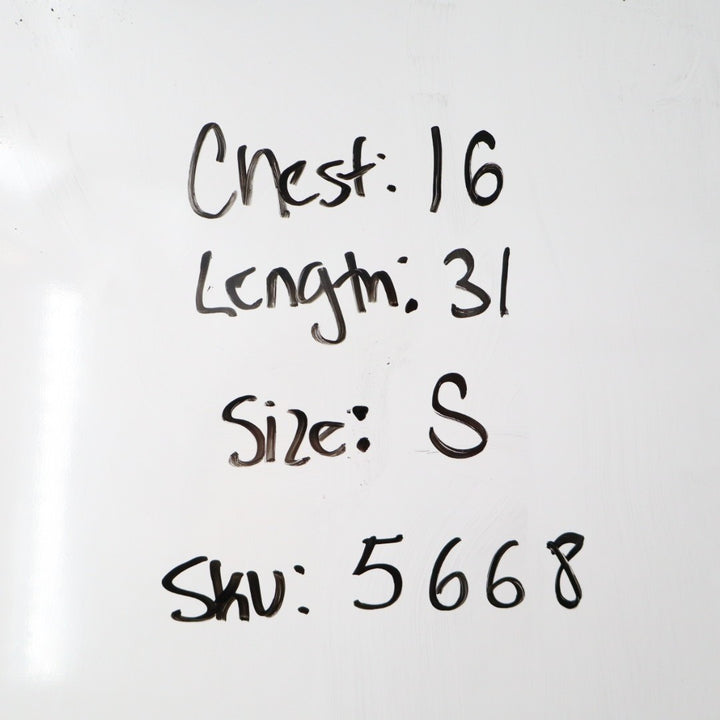 Chest: 16
Length: 31
Size: S
Sku: 5668